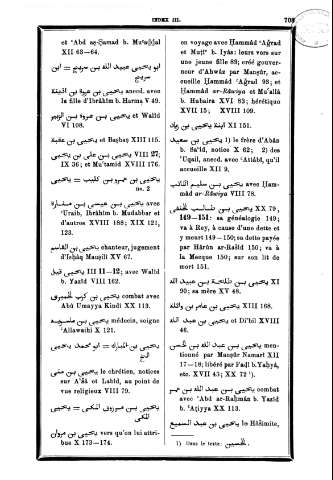 INDEX III.
et ʿAbd aṣ-Ṣamad b. Muʿaḏḏal
XII 63—64.
ابو يحيى عبيد الله بن سريج = ابن
سريج
يحيى بن عروة بن اذينة anecd. avec
la fille d'Ibrâhîm b. Harma V 49.
يحيى بن عروة بن الزبير et Walîd
VI 108.
يحيى بن عقبة et Baṣbaṣ XIII 115.
يحيى بن على بن يحيى VIII 27;
IX 36; et Muʿtamid XVIII 176.
يحيى بن عمرو بن كليب = يحيى
ns. 2
يحيى بن عيسى بن منارة avec
ʿUraib, Ibrâhîm b. Mudabbar et
d'autres XVIII 188; XIX 121,
123.
يحيى بن القاسم chanteur, jugement
d'Isḥâq Mauṣilî XV 67.
يحيى قيل III 11—12; avec Walîd
b. Yazîd VIII 162.
يحيى بن كرب الحميرى combat avec
Abû Umayya Kindî XX 113.
يحيى بن ماسويه médecin, soigne
ʿAllawaihi X 121.
يحيى بن المبارك = ابو محمد يحيى
الخ
يحيى بن متى le chrétien, notices
sur Aʿšâ et Labîd, au point de
vue religieux VIII 79.
يحيى بن مرزوق المكى = يحيى
المكى
يحيى بن مروان vers qu'on lui attri-
bue X 173—174.
en voyage avec Ḥammâd ʿAǧrad
et Muṭîʿ b. Iyâs: leurs vers sur
une jeune fille 89; créé gouver-
neur d'Ahwâz par Manṣûr, ac-
cueille Ḥammâd ʿAǧrad 98; et
Ḥammâd ar-Râwiya et Muʿallâ
b. Hubaira XVI 83; hérétique
XVII 15; XVIII 109.
يحيى بن زبان XI 151.
يحيى بن سعيد 1) le frère d'Abân
b. Saʿîd, notice X 62; 2) des
ʿUqail, anecd. avec ʿAttâbî, qu'il
accueille XII 9.
يحيى بن سليم الكاتب avec Ḥam-
mâd ar-Râwiya VIII 78.
يحيى بن طالب الحنفى XX 79,
149—151: sa généalogie 149;
va à Rey, à cause d'une dette et
y meurt 149—150; sa dette payée
par Hârûn ar-Rašîd 150; va à
la Mecque 150; sur son lit de
mort 151.
يحيى بن طلحة بن عبيد الله XI
90; sa mère XV 48.
يحيى بن عامر بن واثلة XIII 168.
يحيى بن عبد الله et Diʿbil XVIII
46.
يحيى بن عبد الله بن الحسن men-
tionné par Manṣûr Namarî XII
17—18; libéré par Faḍl b. Yaḥyâ,
etc. XVII 45; XX 72 ¹).
يحيى بن عبد الله بن عمر combat
avec ʿAbd ar-Raḥmân b. Yazîd
b. ʿAṭiyya XX 113.
يحيى بن عبد السميع le Hâšimite,
1) Dans le texte: الحسين.